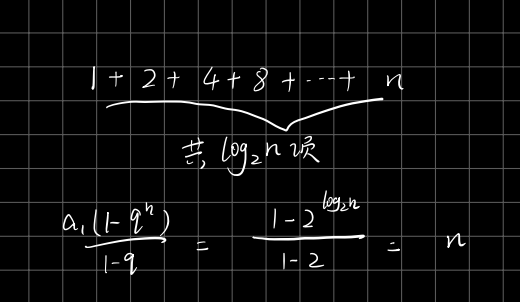 1 + 2 + 4 + 8 + ⋯ + n
共 log₂n 项
a₁(1-qⁿ)/(1-q) = (1-2^(log₂n))/(1-2) = n